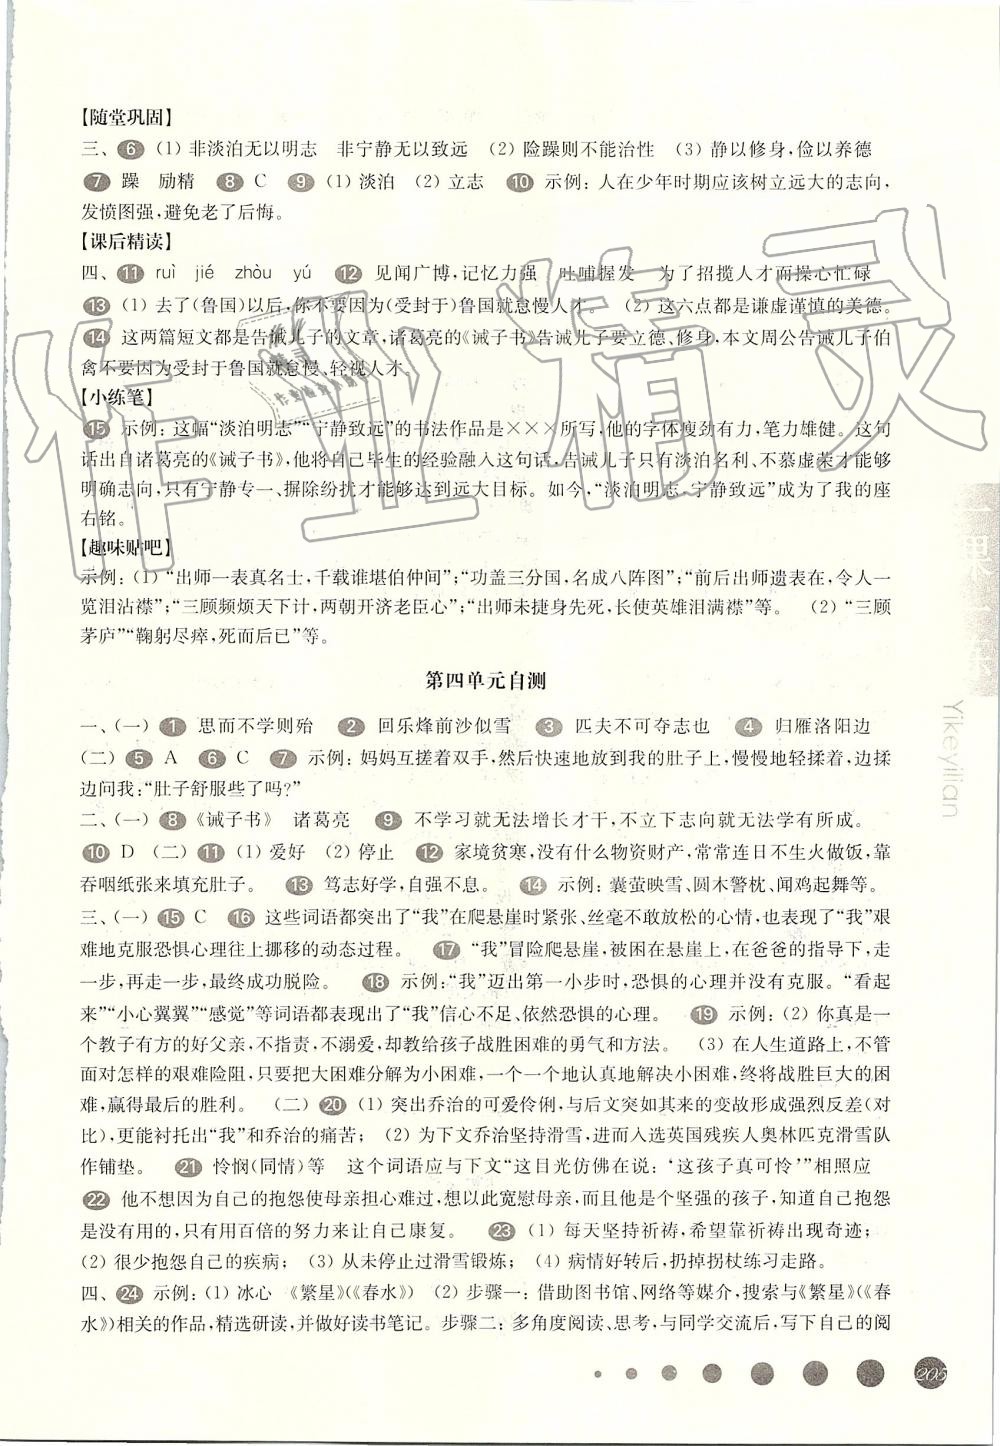 【随堂巩固】
三、6 (1) 非淡泊无以明志 非宁静无以致远 (2) 险躁则不能治性 (3) 静以修身,俭以养德
7 躁 励精 8 C 9 (1) 淡泊 (2) 立志 10 示例:人在少年时期应该树立远大的志向,
发愤图强,避免老了后悔。
【课后精读】
四、11 ruì jié zhòu yú 12 见闻广博,记忆力强 吐哺握发 为了招揽人才而操心忙碌
13 (1) 去了(鲁国)以后,你不要因为(受封于)鲁国就怠慢人才。 (2) 这六点都是谦虚谨慎的美德。
14 这两篇短文都是告诫儿子的文章,诸葛亮的《诫子书》告诫儿子要立德、修身,本文周公告诫儿子伯
禽不要因为受封于鲁国就怠慢、轻视人才。
【小练笔】
15 示例:这幅“淡泊明志”“宁静致远”的书法作品是×××所写,他的字体瘦劲有力,笔力雄健。这句
话出自诸葛亮的《诫子书》,他将自己毕生的经验融入这句话,告诫儿子只有淡泊名利、不慕虚荣才能够
明确志向,只有宁静专一、摒除纷扰才能够达到远大目标。如今,“淡泊明志,宁静致远”成为了我的座
右铭。
【趣味贴吧】
示例:(1)“出师一表真名士,千载谁堪伯仲间”;“功盖三分国,名成八阵图”;“前后出师遗表在,令人一
览泪沾襟”;“三顾频烦天下计,两朝开济老臣心”;“出师未捷身先死,长使英雄泪满襟”等。 (2)“三顾
茅庐”“鞠躬尽瘁,死而后已”等。
第四单元自测
一、(一) 1 思而不学则殆 2 回乐烽前沙似雪 3 匹夫不可夺志也 4 归雁洛阳边
(二) 5 A 6 C 7 示例:妈妈互搓着双手,然后快速地放到我的肚子上,慢慢地轻揉着,边
边问我:“肚子舒服些了吗?”
二、(一) 8 《诫子书》 诸葛亮 9 不学习就无法增长才干,不立下志向就无法学有所成。
10 D (二) 11 (1) 爱好 (2) 停止 12 家境贫寒,没有什么物资财产,常常连日不生火做饭,靠
吞咽纸张来填充肚子。 13 笃志好学,自强不息。 14 示例:囊萤映雪、圆木警枕、闻鸡起舞等。
三、(一) 15 C 16 这些词语都突出了“我”在爬悬崖时紧张、丝毫不敢放松的心情,也表现了“我”艰
难地克服恐惧心理往上挪移的动态过程。 17 “我”冒险爬悬崖,被困在悬崖上,在爸爸的指导下,走
一步,再走一步,最终成功脱险。 18 示例:“我”迈出第一小步时,恐惧的心理并没有克服。“看起
来”“小心翼翼”“感觉”等词语都表现出了“我”信心不足、依然恐惧的心理。 19 示例:(2) 你真是一
个教子有方的好父亲,不指责、不溺爱,却教给孩子战胜困难的勇气和方法。 (3) 在人生道路上,不管
面对怎样的艰难险阻,只要把大困难分解为小困难,一个一个地认真地解决小困难,终将战胜巨大的困
难,赢得最后的胜利。 (二) 20 (1) 突出乔治的可爱伶俐,与后文突如其来的变故形成强烈反差(对
比),更能衬托出“我”和乔治的痛苦; (2) 为下文乔治坚持滑雪,进而入选英国残疾人奥林匹克滑雪队
作铺垫。 21 怜悯(同情)等 这个词语应与下文“这目光仿佛在说:‘这孩子真可怜’”相照应
22 他不想因为自己的抱怨使母亲担心难过,想以此宽慰母亲,而且他是个坚强的孩子,知道自己抱怨
是没有用的,只有用百倍的努力来让自己康复。 23 (1) 每天坚持祈祷,希望靠祈祷出现奇迹;
(2) 很少抱怨自己的疾病; (3) 从未停止过滑雪锻炼; (4) 病情好转后,扔掉拐杖练习走路。
四、24 示例:(1) 冰心 《繁星》(《春水》) (2) 步骤一:借助图书馆、网络等媒介,搜索与《繁星》(《春
水》)相关的作品,精选研读,并做好读书笔记。步骤二:多角度阅读、思考,与同学交流后,写下自己的阅
一课一练
Yikeyilian
205
作业精灵